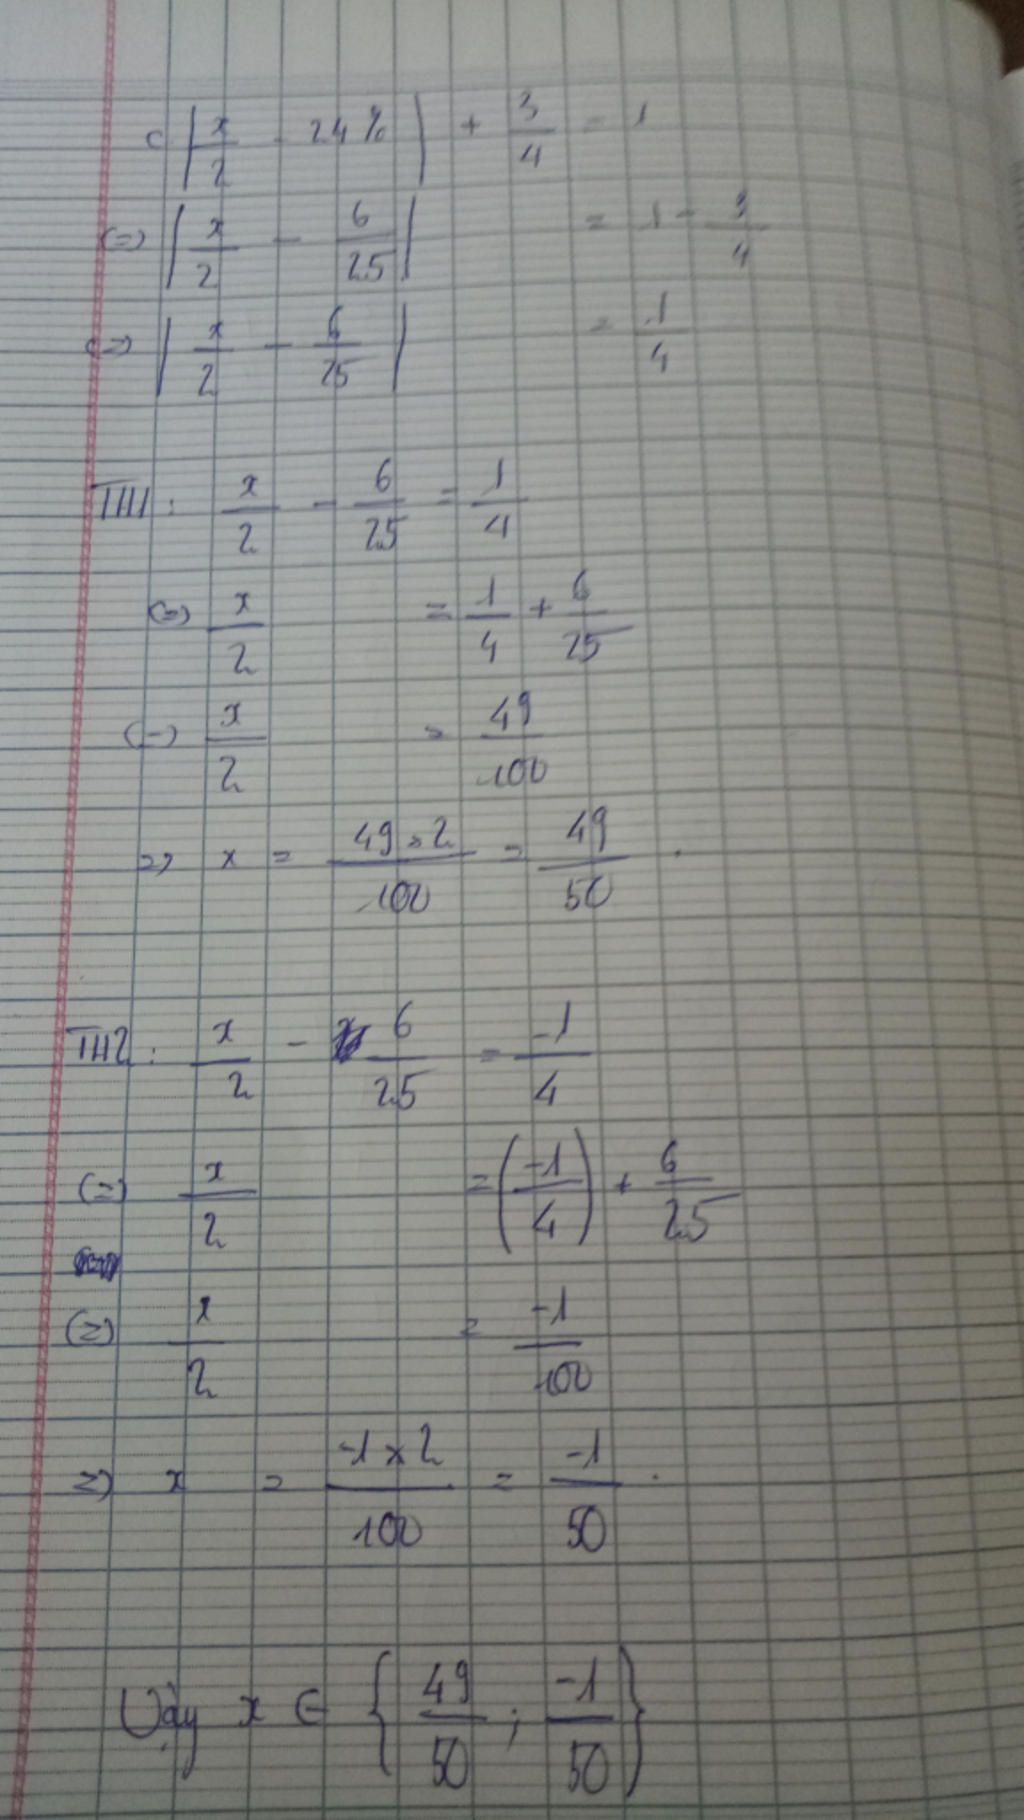 c |x/2 - 24%| + 3/4 = 1
(=) |x/2 - 6/25| = 1 - 3/4
(=) |x/2 - 6/25| = 1/4
TH1 : x/2 - 6/25 = 1/4
(=) x/2 = 1/4 + 6/25
(=) x/2 = 49/100
=> x = 49 . 2/100 = 49/50 .
TH2 : x/2 - 6/25 = -1/4
(=) x/2 = (-1/4) + 6/25
(=) x/2 = -1/100
=> x = -1 x 2/100 = -1/50 .
Vậy x ∈ {49/50 ; -1/50}